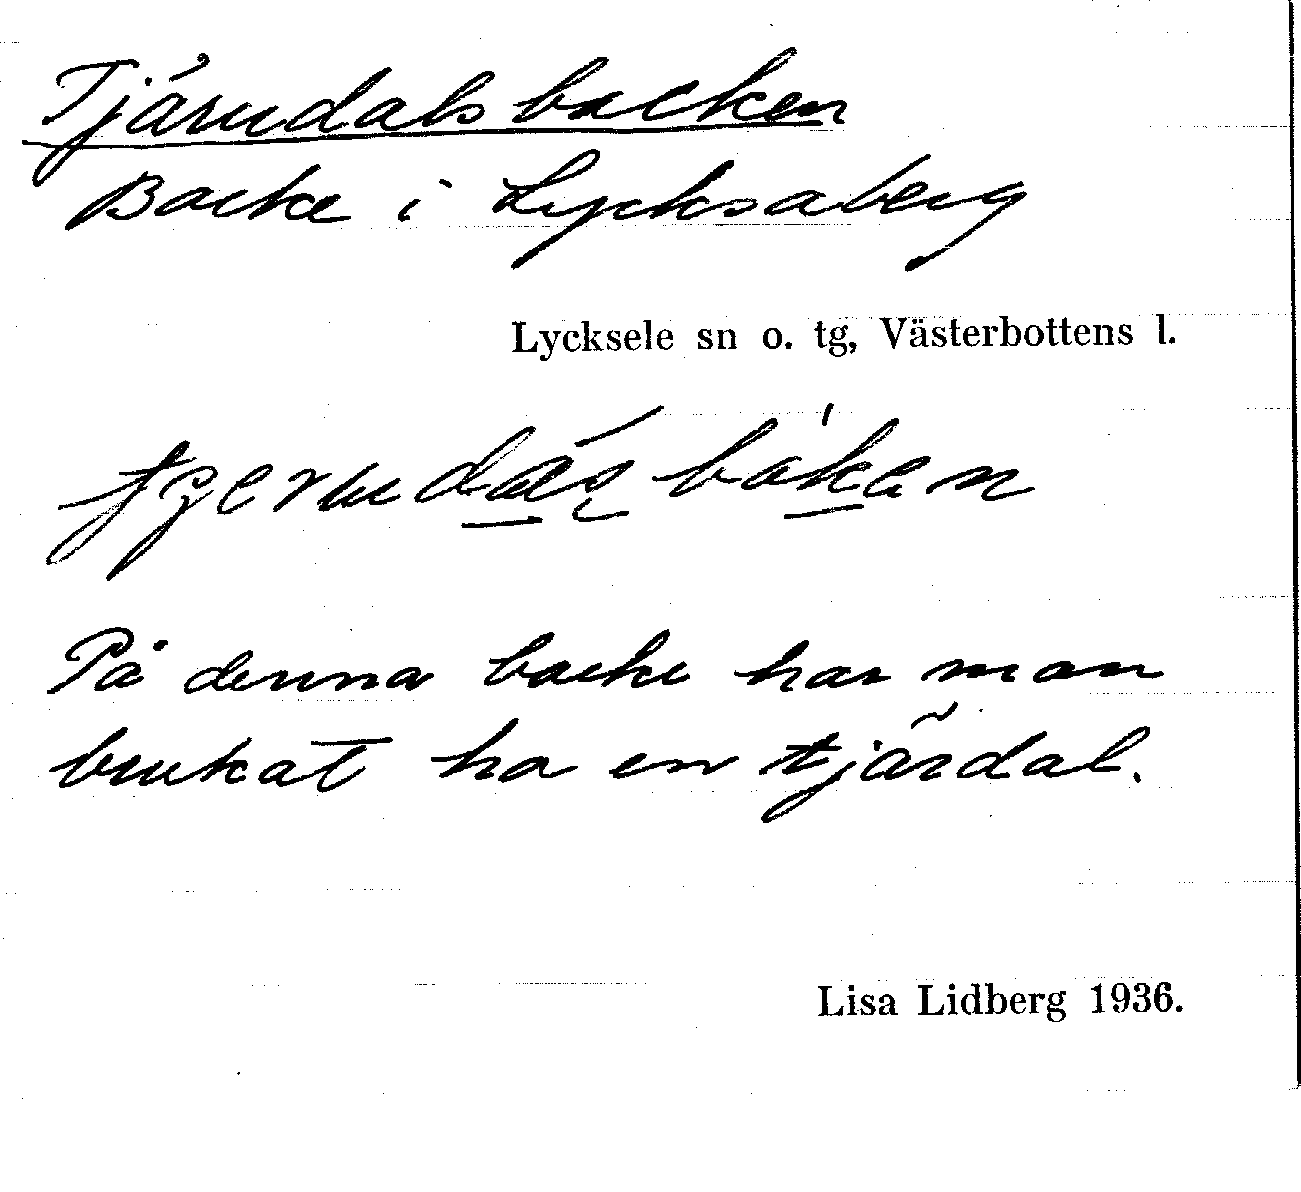 Tjärudalsbacken
Backe i Lycksaberg
Lycksele sn o. tg, Västerbottens l.
På denna backe har man
brukat ha en tjärdal.
Lisa Lidberg 1936.